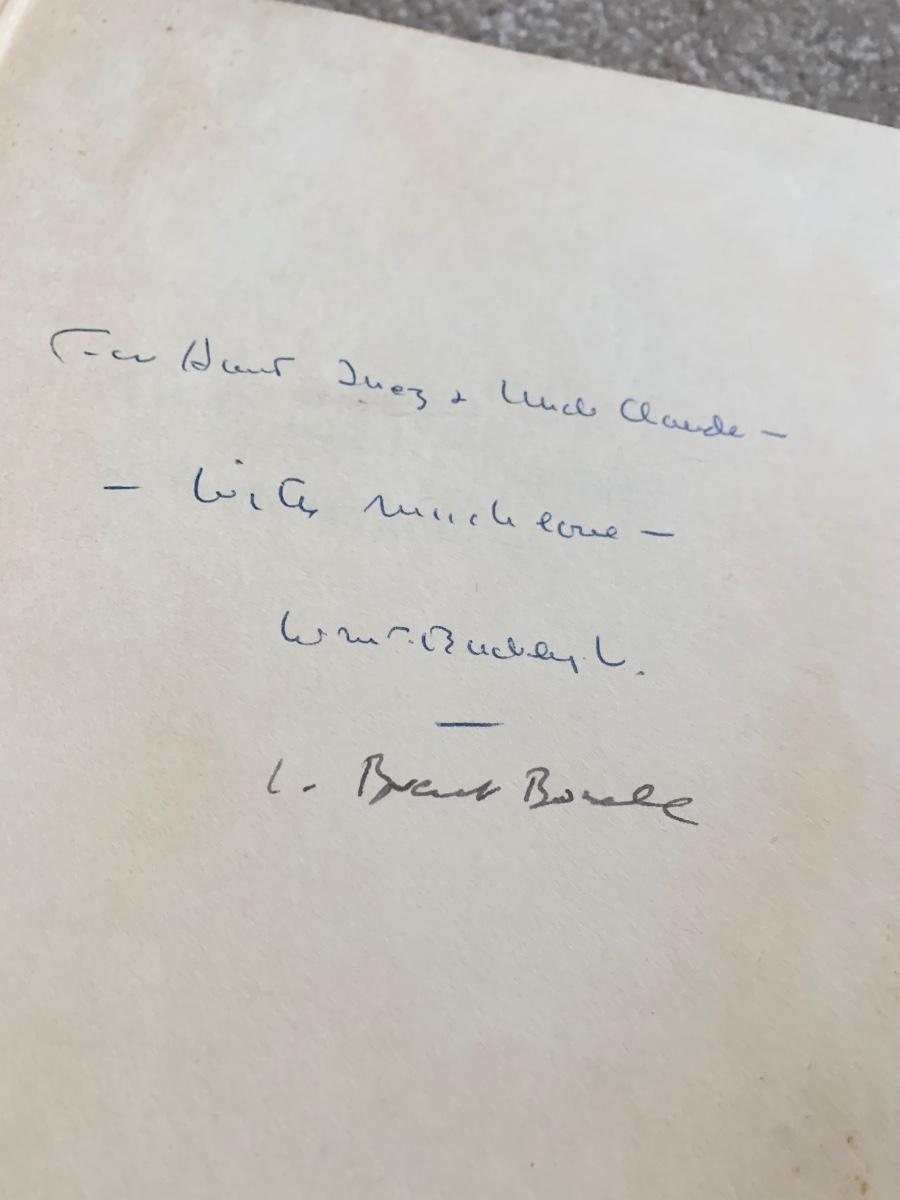 For Aunt Inez & Uncle Claude —
— With much love —
Wm F. Buckley Jr.
L. Brent Bozell